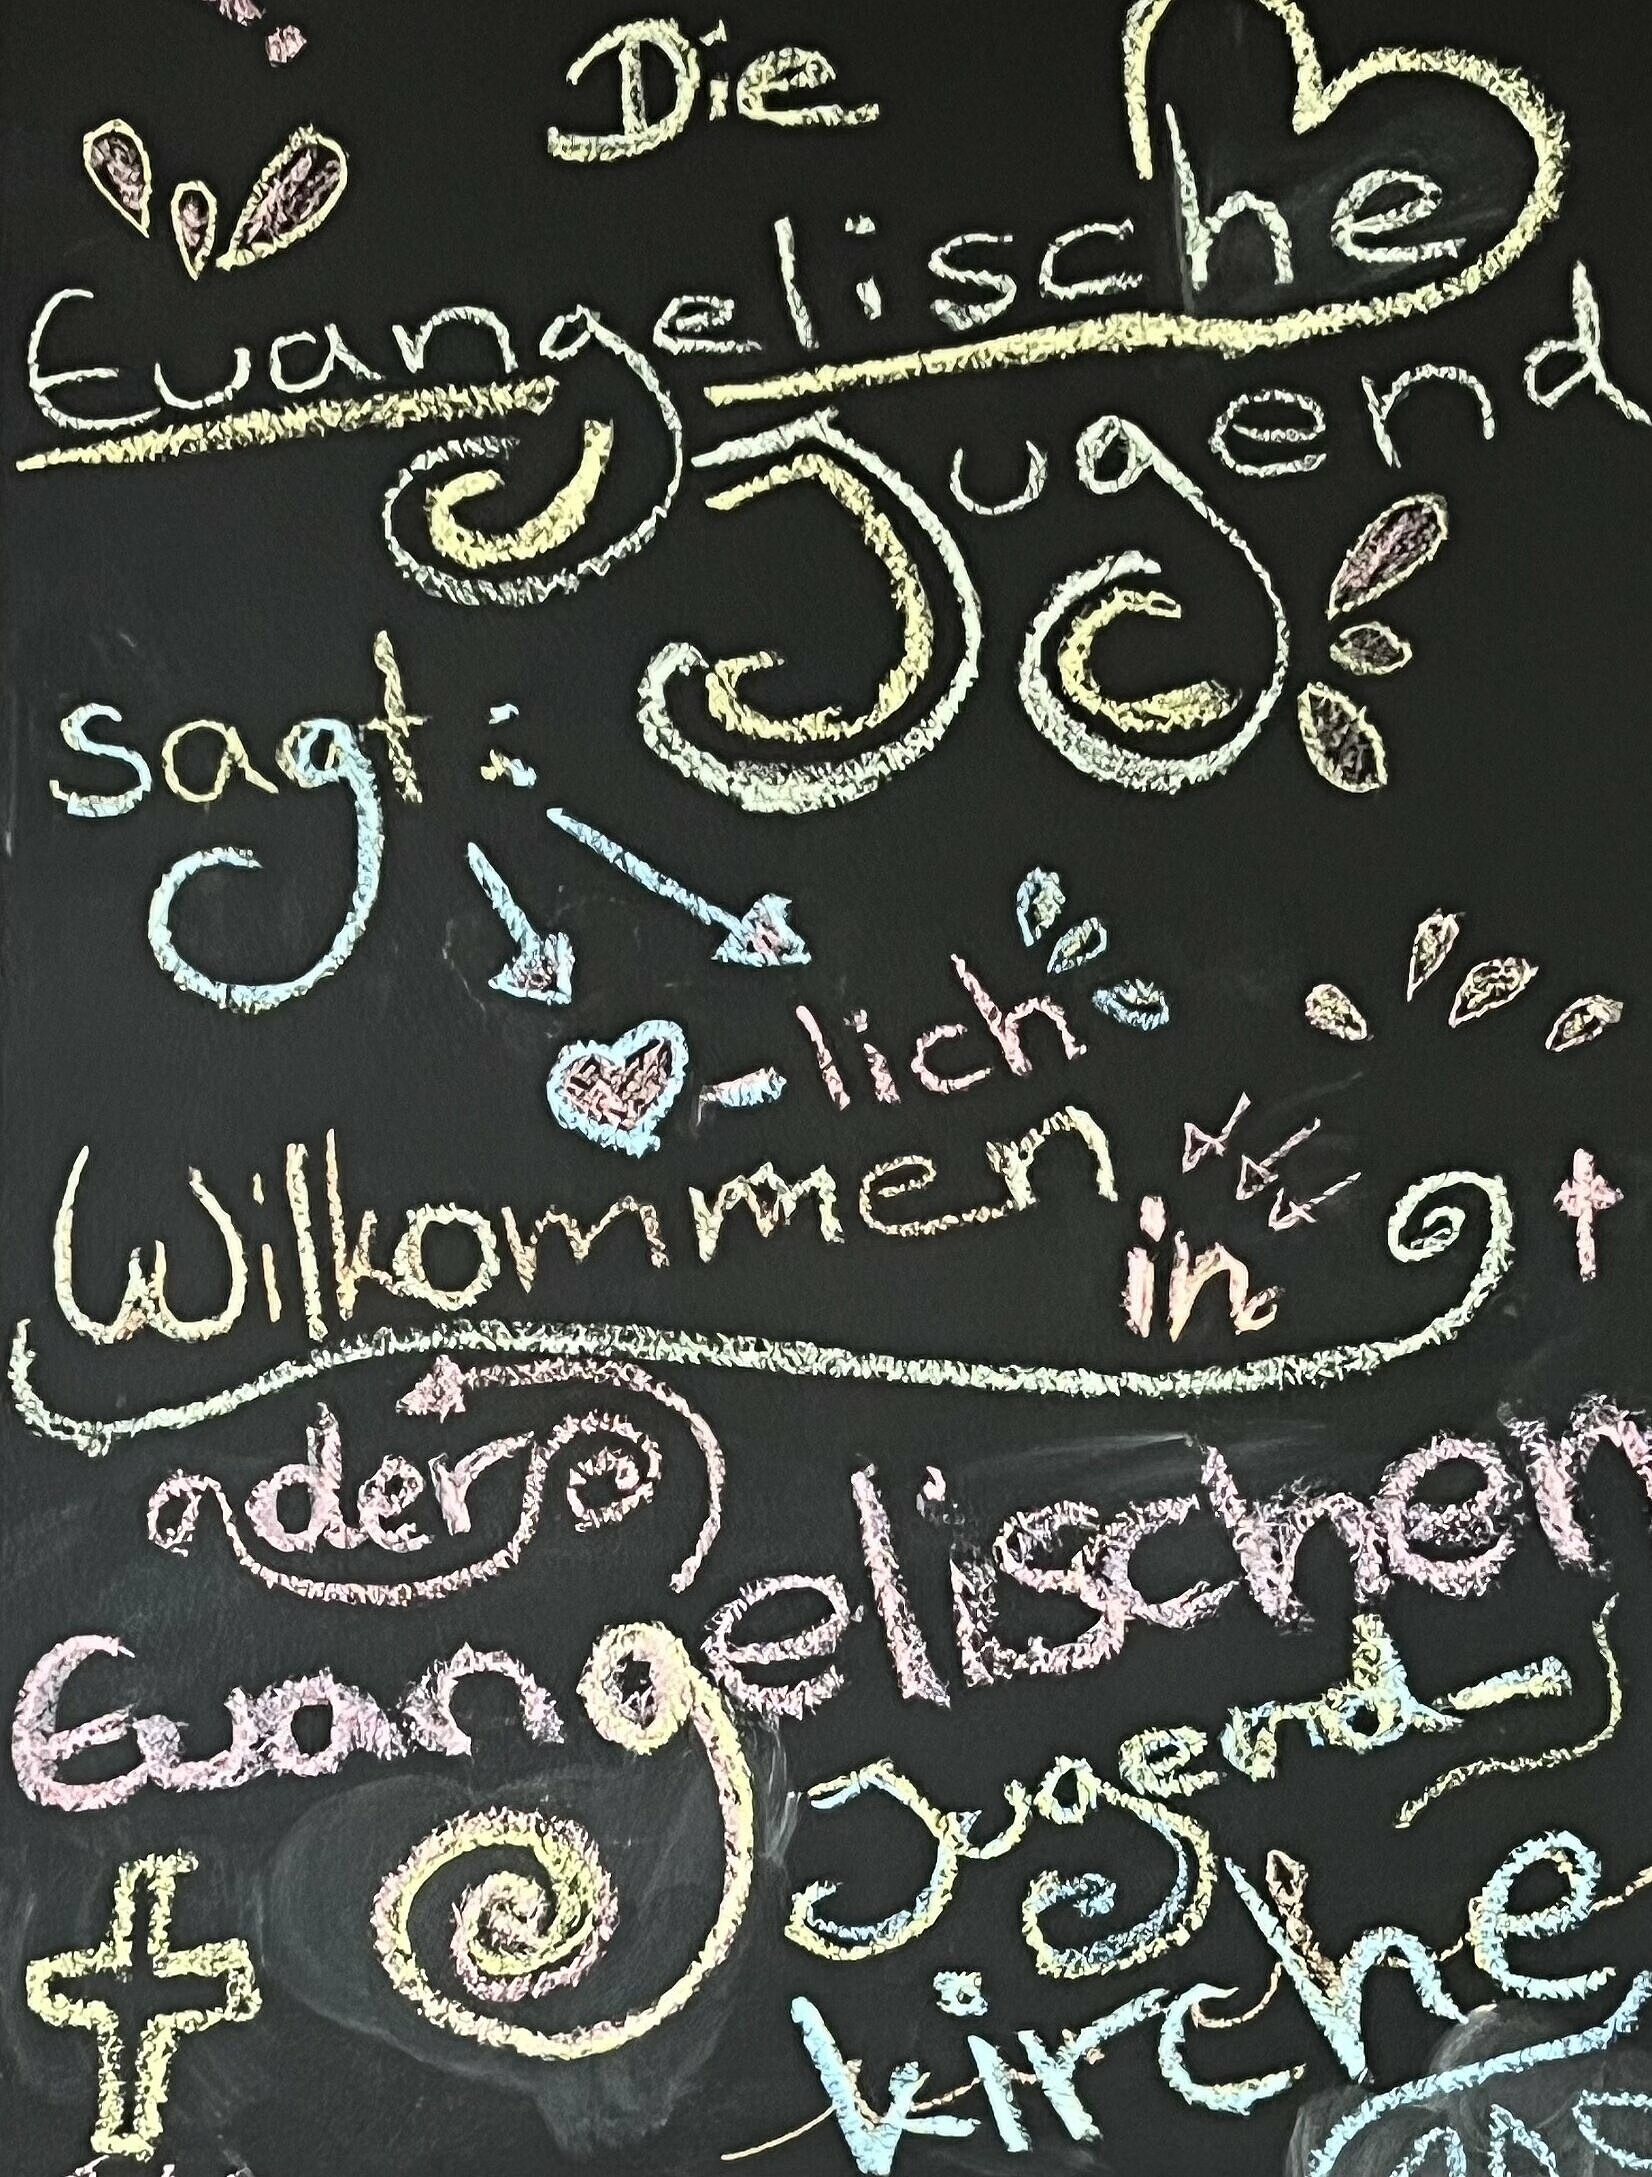 Die
Evangelische
Jugend
sagt:
-lich
Willkommen
in
der
Evangelischen
Jugend-
kirche